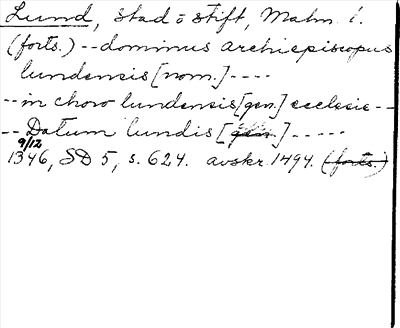 Lund, stad o stift, Malm. l.
(forts.) -- dominus archiepiscopus
lundensis [nom.] ----
-- in choro lundensis [gen.] ecclesie --
-- Datum lundis [gen.] -----
9/12
1346, SD 5, s. 624. avskr. 1494. (forts.)